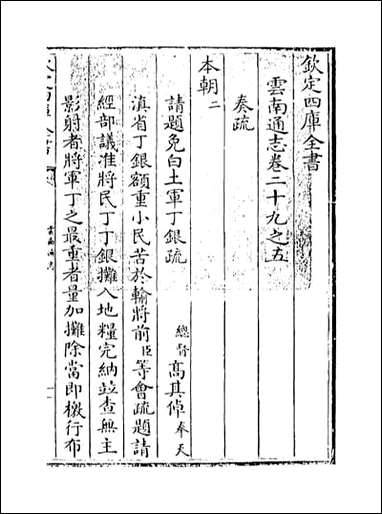 欽定四庫全書
雲南通志卷二十九之五
奏疏
本朝二
請題免白土軍丁銀疏 總督高其倬奉天
滇省丁銀額重小民苦於輸將前臣等會疏題請
經部議准將民丁丁銀攤入地糧完納並查無主
影射者將軍丁之最重者量加攤除當即檄行布
欽定四庫全書
雲南通志